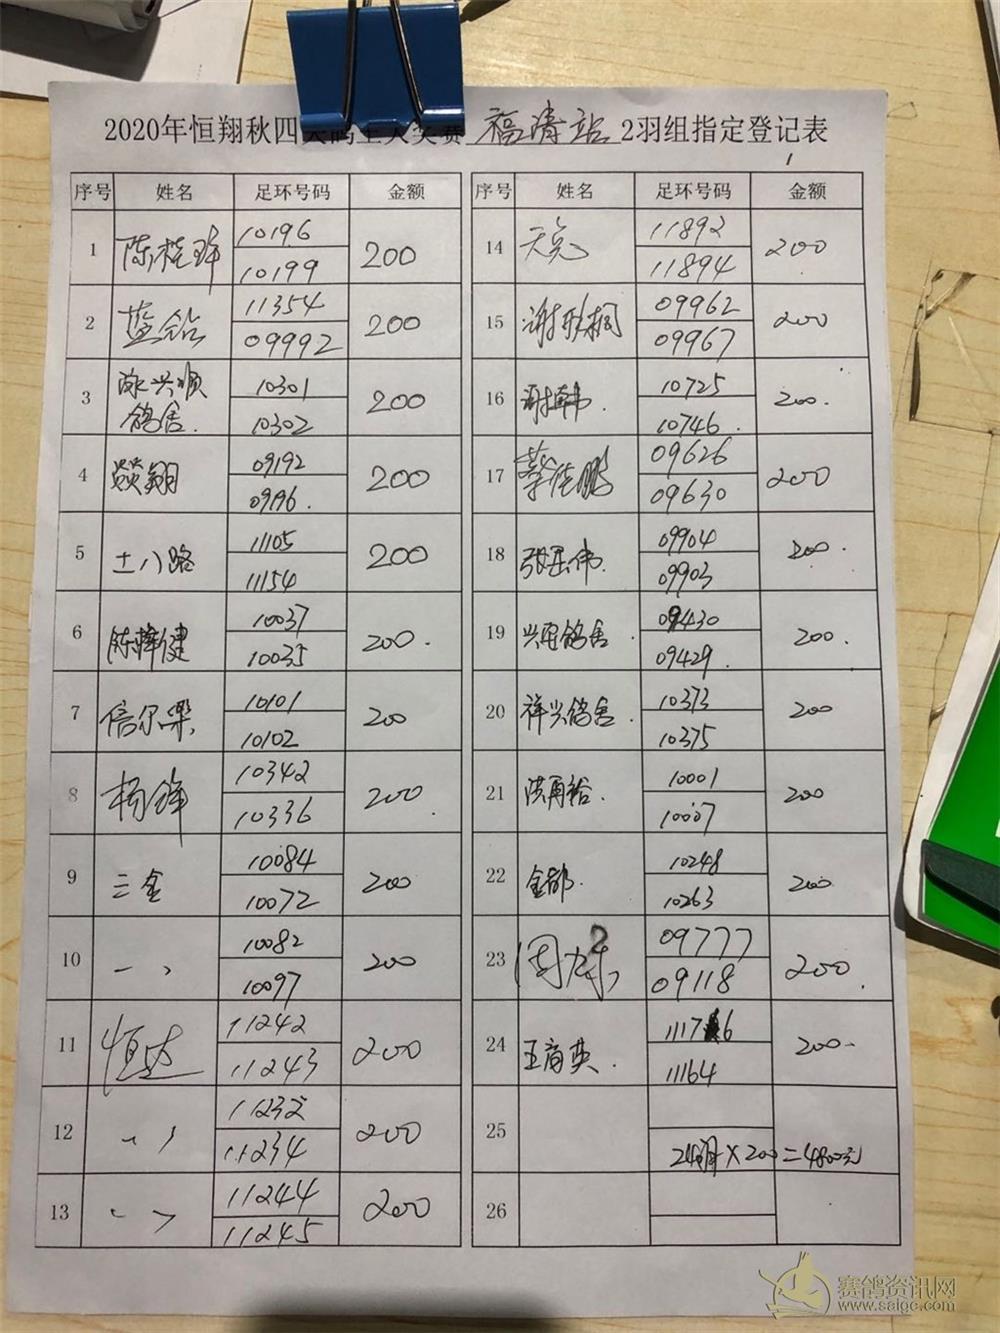 2020年恒翔秋四 奖赛 福清站 2羽组指定登记表
序号 姓名 足环号码 金额
1 10196 200
10199
2 蓝钻 11354 200
09992
3 兴顺鸽舍 10301 200
10302
4 燚翔 09192 200
09196.
5 土八路 11105 200
11154
6 陈锋健 10037 200.
10035
7 信尔乐 10101 200
10102
8 杨锋 10342 200
10336
9 三金 10084 200
10072
10 10082 200
10097
11 恒达 11242 200
11243
12 11232 200
11234
13 11244 200
11245
序号 姓名 足环号码 金额
14 11892 200
11894
15 谢 桐 09962 200
09967
16 谢 韦. 10725 200.
10746.
17 蔡佳鹏 09626 200
09630
18 张 伟. 09904 200.
09903
19 兴 鸽舍. 09430 200.
09429.
20 祥兴鸽舍. 10373 200
10375
21 洪再裕. 10001 200
10007
22 金都. 10248 200
10263
23 周 09777 200.
09118
24 王商英. 11176 200.
11164
25
24 ×200=4800元
26
赛鸽资讯网
www.saigc.com